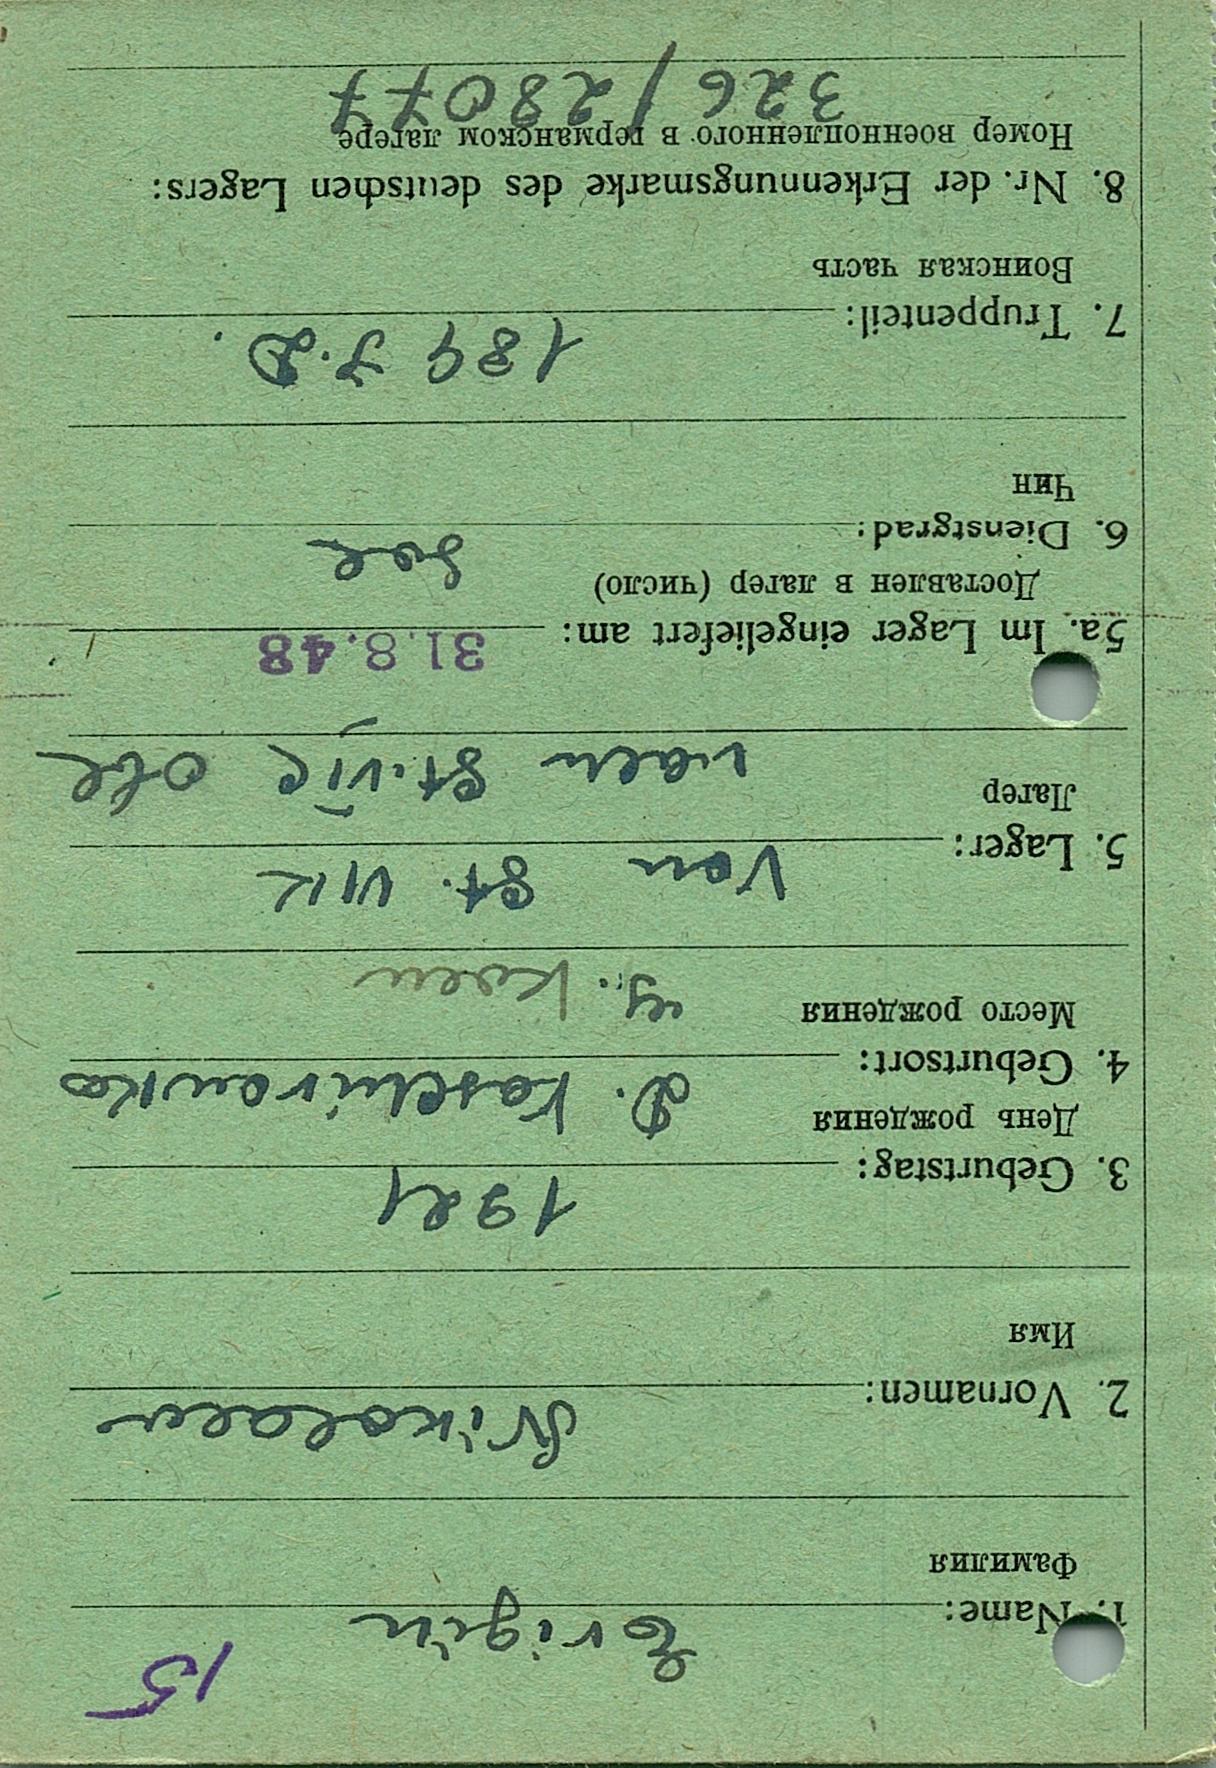 15
1. Name: Erigin
Фамилия
2. Vornamen: Nikolaew
Имя
3. Geburtstag: 1921
День рождения
4. Geburtsort: D. Kaschirowka
Место рождения
5. Lager: Von St. VIK
Лагер
nach St. VIC
5a. Im Lager eingeliefert am: 31.8.43
Доставлен в лагер (число)
6. Dienstgrad: Sol
Чин
7. Truppenteil: 189 J.D.
Воинская часть
8. Nr. der Erkennungsmarke des deutschen Lagers:
Номер военнопленного в германском лагере
326/28077